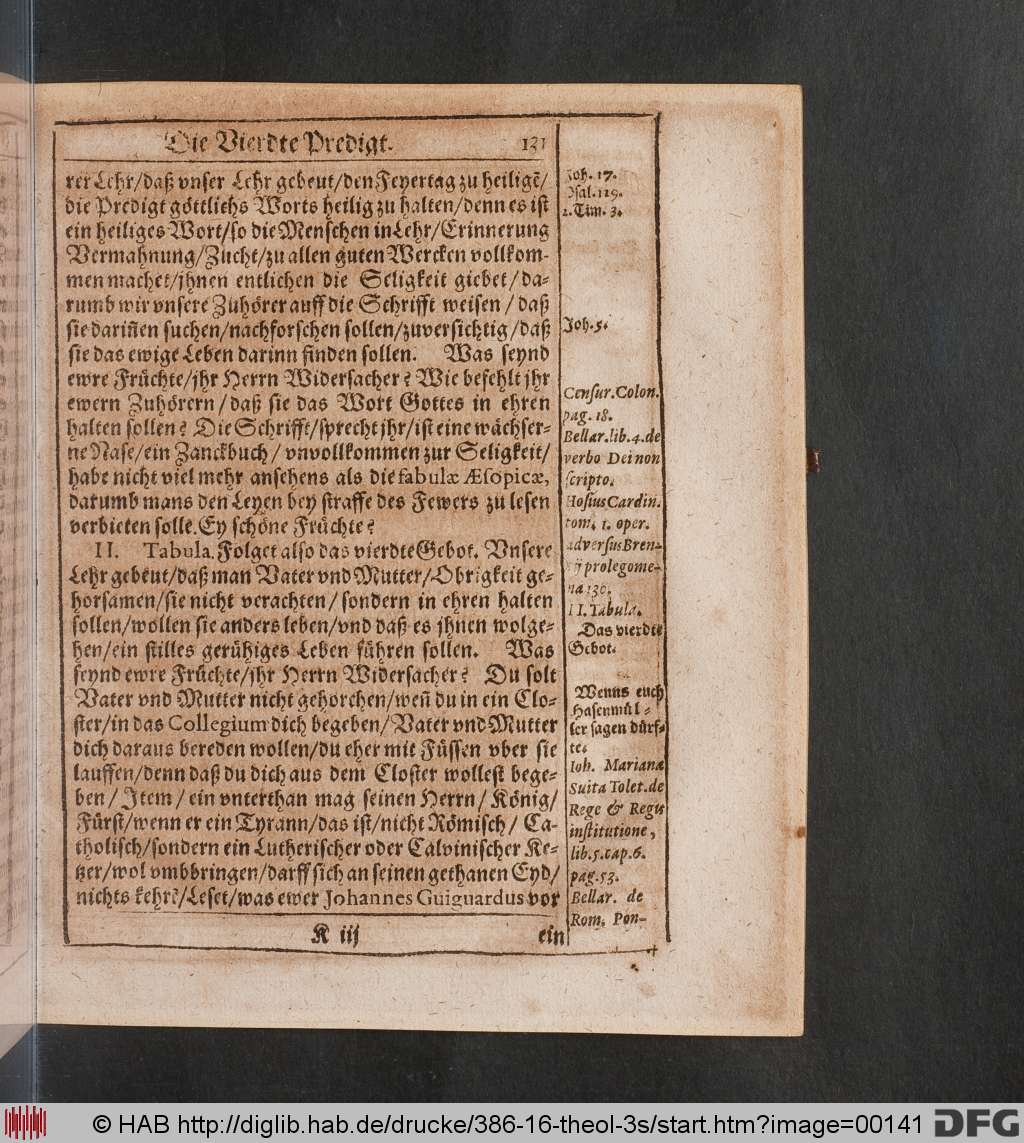 Die Vierdte Predigt. 131
rer Lehr/daß vnser Lehr gebeut/den Feyertag zu heiligẽ/
die Predigt göttlichs Worts heilig zu halten/denn es ist
ein heiliges Wort/so die Menschen in Lehr/Erinnerung
Vermahnung/Zucht/zu allen guten Wercken vollkom-
men machet/jhnen entlichen die Seligkeit giebet/da-
rumb wir vnsere Zuhörer auff die Schrifft weisen/daß
sie dariñen suchen/nachforschen sollen/zuversichtig/daß
sie das ewige Leben darinn finden sollen. Was seynd
ewre Früchte/jhr Herrn Widersacher? Wie befehlt jhr
ewern Zuhörern/daß sie das Wort Gottes in ehren
halten sollen? Die Schrifft/sprecht jhr/ist eine wächser-
ne Nase/ein Zanckbuch/vnvollkommen zur Seligkeit/
habe nicht viel mehr ansehens als die fabulæ Æsopicæ,
darumb mans den Leyen bey straffe des Fewers zu lesen
verbieten solle. Ey schöne Früchte?
II. Tabula. Folget also das vierdte Gebot. Vnsere
Lehr gebeut/daß man Vater vnd Mutter/Obrigkeit ge-
horsamen/sie nicht verachten/sondern in ehren halten
sollen/wollen sie anders leben/vnd daß es jhnen wolge-
hen/ein stilles gerühiges Leben führen sollen. Was
seynd ewre Früchte/jhr Herrn Widersacher? Du solt
Vater vnd Mutter nicht gehorchen/weñ du in ein Clo-
ster/in das Collegium dich begeben/Vater vnd Mutter
dich daraus bereden wollen/du eher mit Füssen vber sie
lauffen/denn daß du dich aus dem Closter wollest bege-
ben/Item/ein vnterthan mag seinen Herrn/König/
Fürst/wenn er ein Tyrann/das ist/nicht Römisch/Ca-
tholisch/sondern ein Lutherischer oder Calvinischer Ke-
tzer/wol vmbbringen/darff sich an seinen gethanen Eyd/
nichts kehrẽ/Leset/was ewer Johannes Guiguardus vor
K iij ein
Joh. 17.
Psal. 119.
2. Tim. 3.
Joh. 5.
Censur. Colon.
pag. 18.
Bellar. lib. 4. de
verbo Dei non
scripto.
Hosius Cardin.
tom. 1. oper.
adversus Bren-
tij prolegome-
na 130.
II. Tabula.
Das vierdte
Gebot.
Wenns euch
Hasenmül-
ler sagen dürf-
te.
Ioh. Mariana
Suita Tolet. de
Rege & Regis
institutione,
lib. 5. cap. 6.
pag. 53.
Bellar. de
Rom. Pon-
© HAB http://diglib.hab.de/drucke/386-16-theol-3s/start.htm?image=00141 DFG